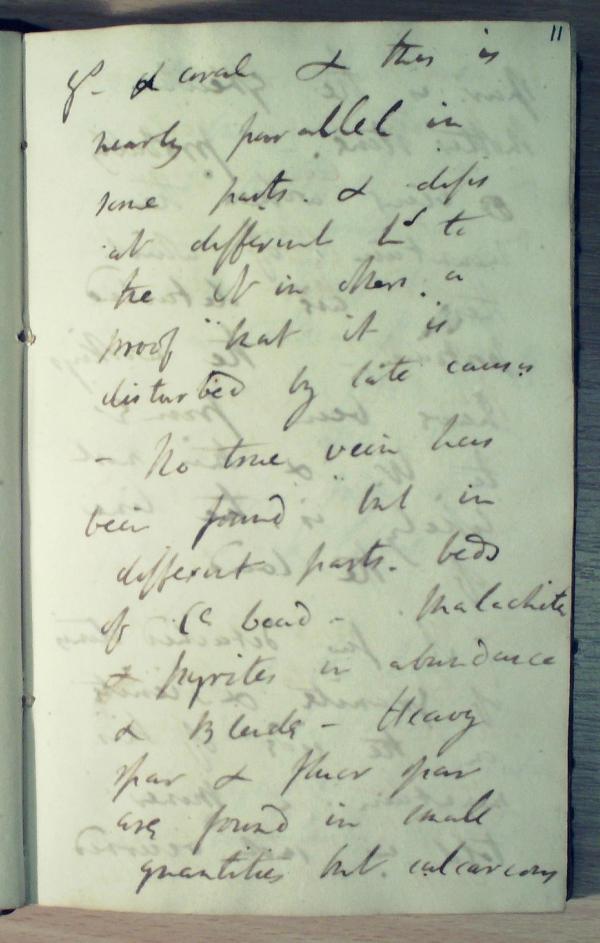 11
& coral & this is
nearly parallel in
some parts. & dips
at different
the W in others. a
proof that it is
disturbed by late causes
- No true vein has
been found but in
different parts. beds
of
Malachite
& pyrites in abundance
& Blende - Heavy
spar & fluor spar
are found in small
quantities but. calcareous